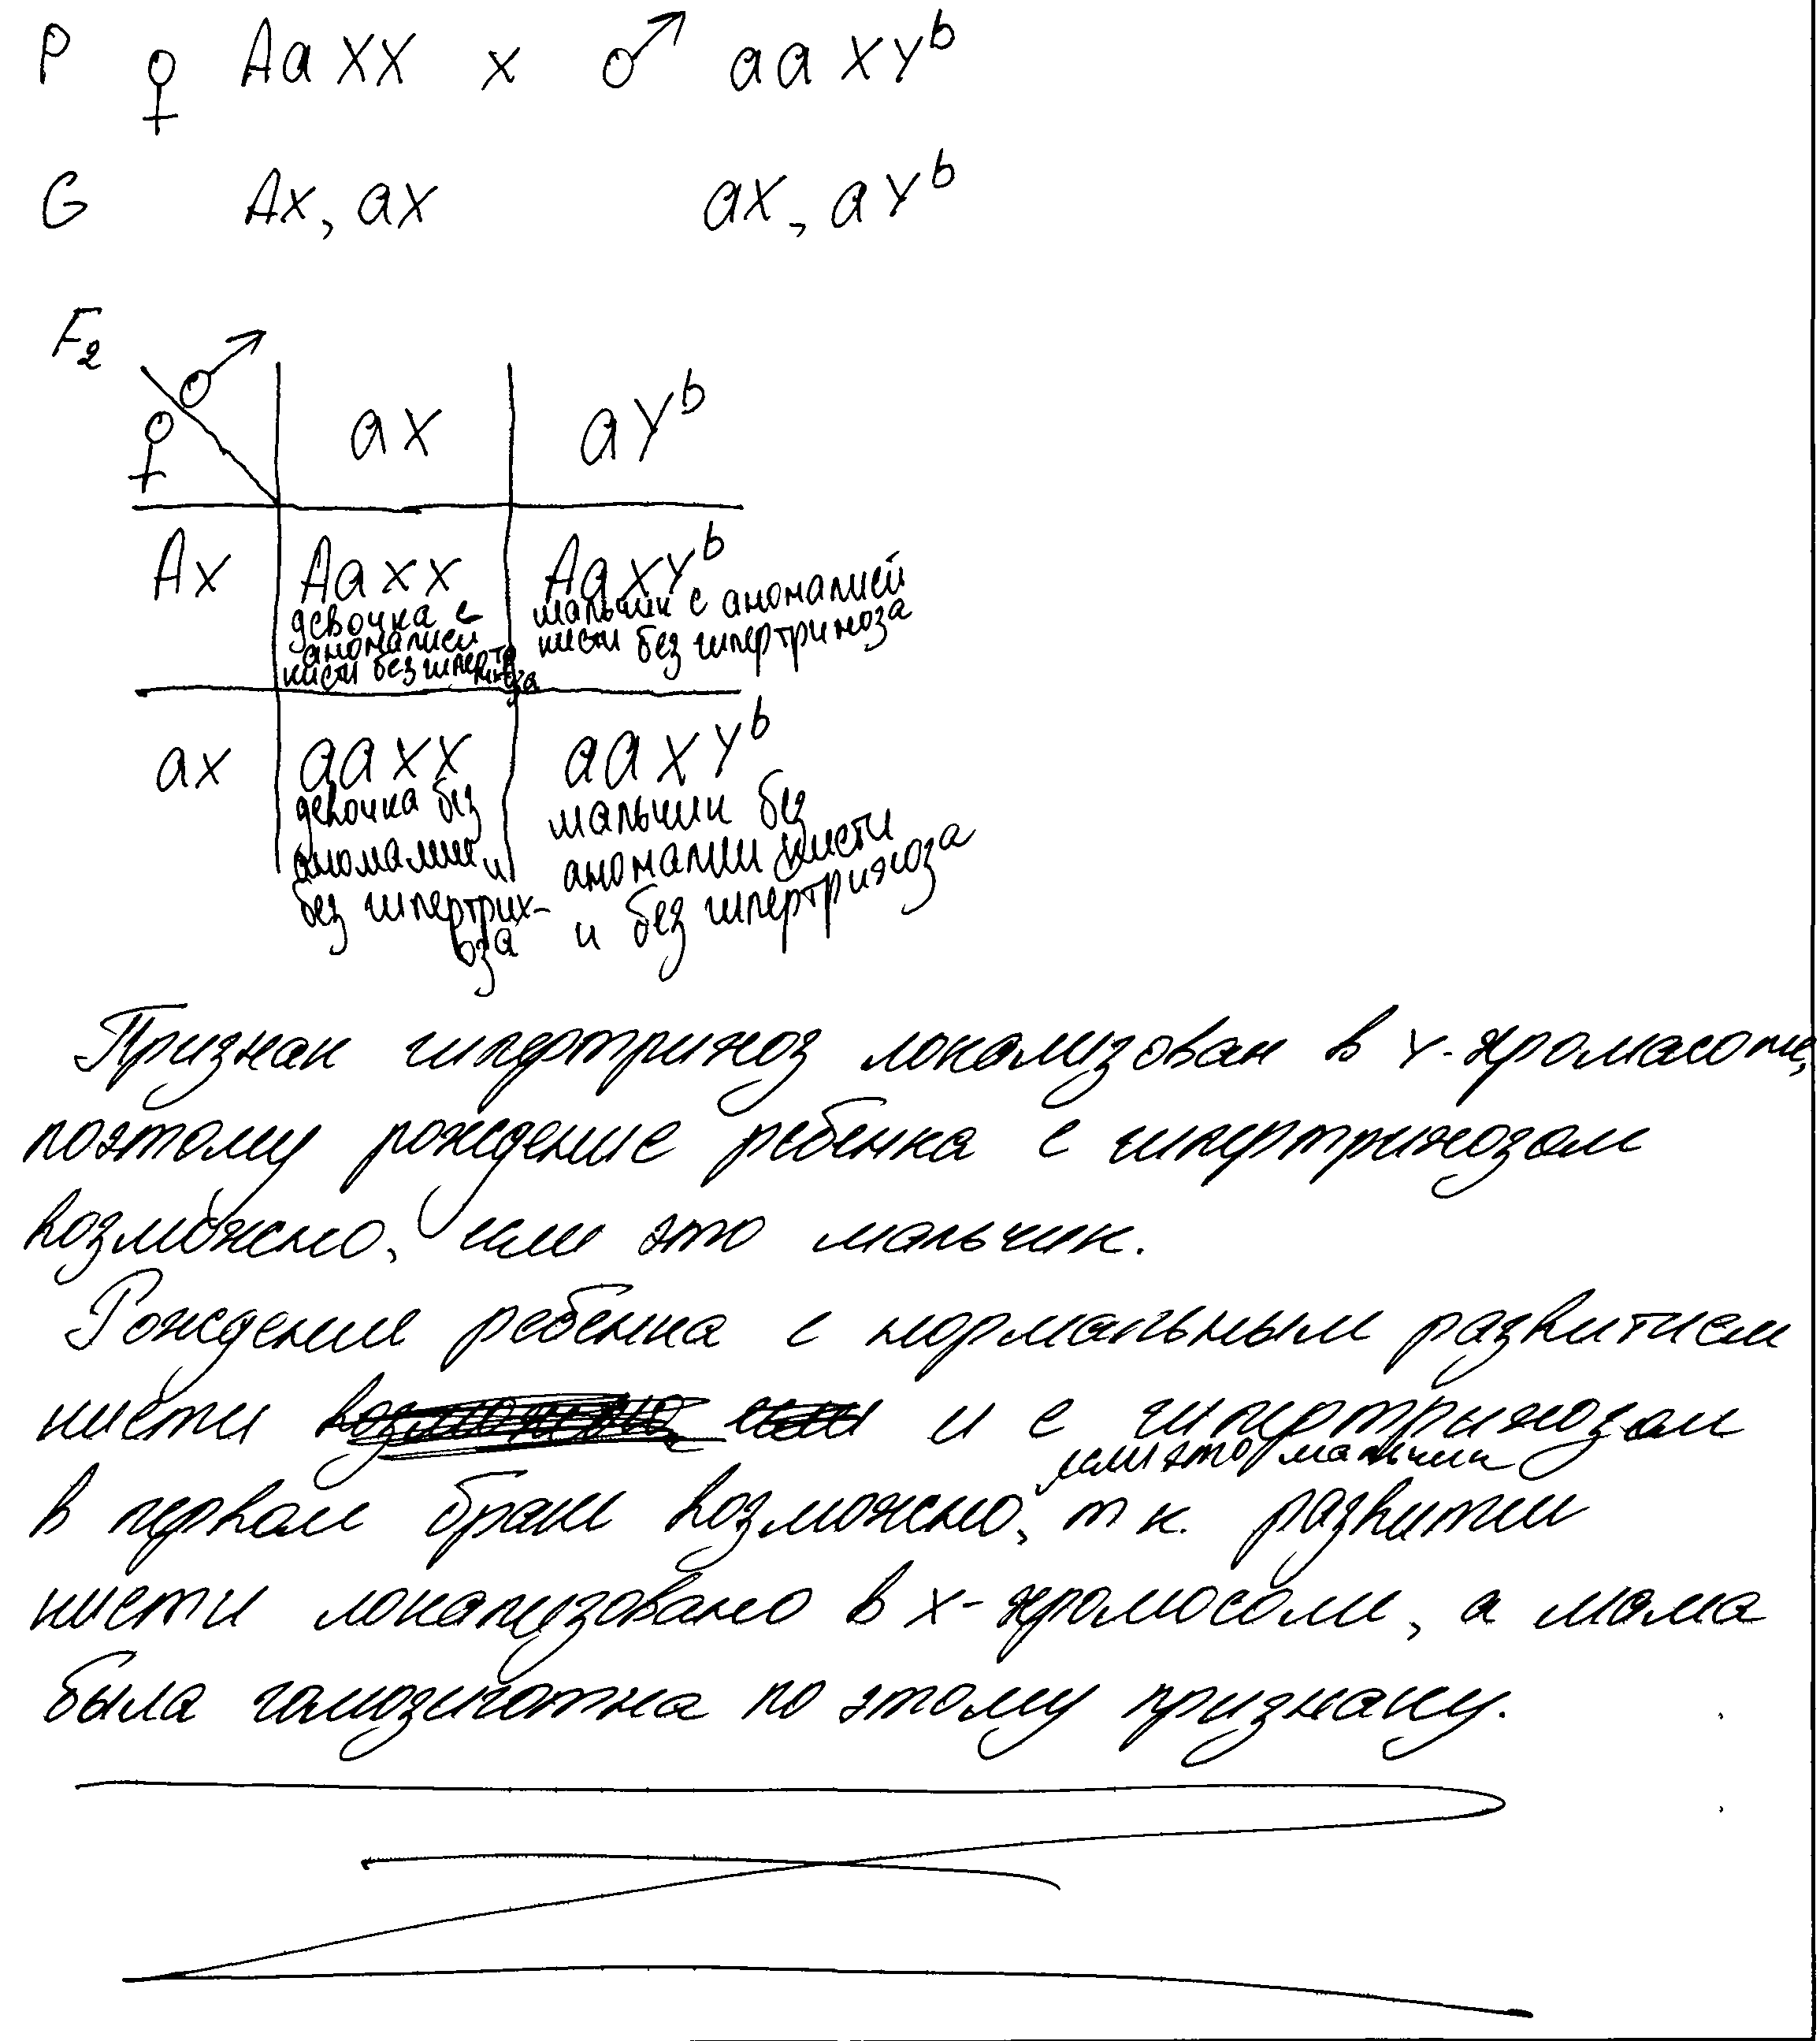 P ♀ Aa XX x ♂ aa XY^b
G AX, aX aX, aY^b
F₂
♂ ♀ aX aY^b
AX AaXX AaXY^b
девочка с аномалией кисти без гипертрихоза
мальчик с аномалией кисти без гипертрихоза
aX aaXX aaXY^b
девочка без аномалии и без гипертрих-оза
мальчик без аномалии кисти и без гипертрихоза
Признак гипертрихоз локализован в Y-хромасоме,
поэтому рождение ребенка с гипертрихозом
возможно, если это мальчик.
Рождение ребенка с нормальным развитием
кисти и с гипертрихозом
если это мальчик
в первом браке возможно, т к. развитие
кисти локализовано в X-хромосоме, а мама
была гомозиготна по этому признаку.